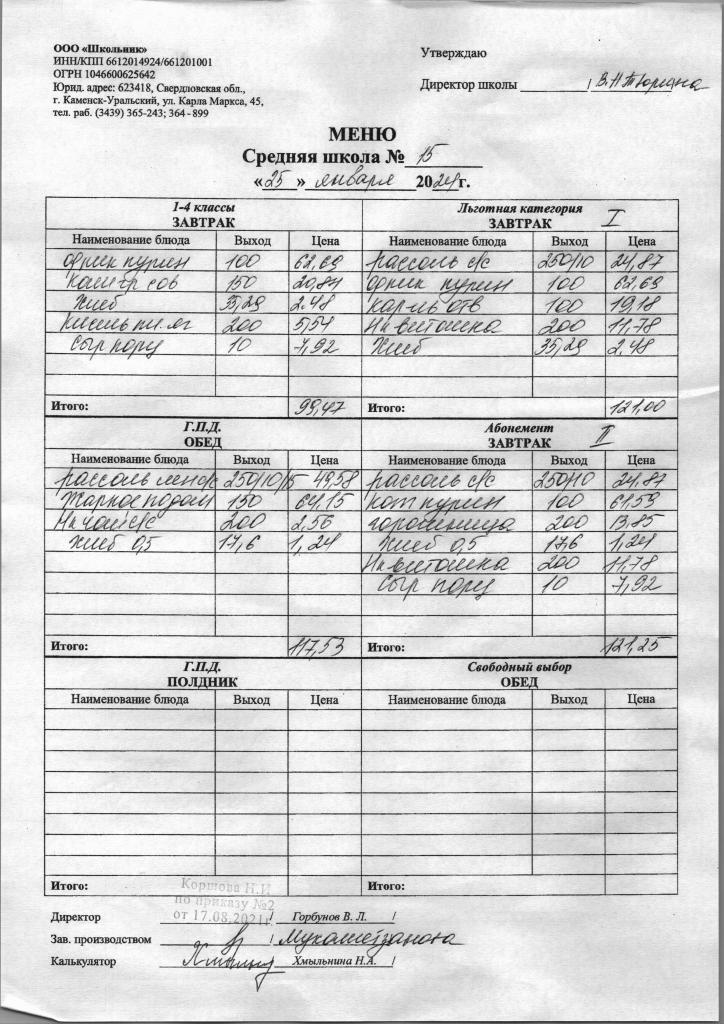 ООО «Школьник»
ИНН/КПП 6612014924/661201001
ОГРН 1046600625642
Юрид. адрес: 623418, Свердловская обл.,
г. Каменск-Уральский, ул. Карла Маркса, 45,
тел. раб. (3439) 365-243; 364 - 899
Утверждаю
Директор школы __________/
МЕНЮ
Средняя школа № 15
«25» января 2024г.
1-4 классы
ЗАВТРАК
Наименование блюда Выход Цена
фрик курин 100 62,69
Каша гр 150 20,84
Хлеб 35,29 2.48
Кисель 200 5,54
Сыр порц 10 7,92
Итого: 99,47
Льготная категория
ЗАВТРАК I
Наименование блюда Выход Цена
рассоль с/с 250/10 24,87
фрик курин 100 62,69
кар-ль отв 100 19,18
Нк витошка 200 11,78
Хлеб 35,29 2.48
Итого: 121,00
Г.П.Д.
ОБЕД
Наименование блюда Выход Цена
рассоль 250/10/15 49,58
Жаркое по дом 150 64,15
Нк чай с/с 200 2,56
Хлеб 0,5 17,6 1,24
Итого: 117,53
Абонемент
ЗАВТРАК II
Наименование блюда Выход Цена
рассоль с/с 250/10 24.87
кот курин 100 61,59
горошница 200 13.85
Хлеб 0,5 17,6 1,24
Нк витошка 200 11,78
Сыр порц 10 7,92
Итого: 121,25
Г.П.Д.
ПОЛДНИК
Наименование блюда Выход Цена
Итого:
Свободный выбор
ОБЕД
Наименование блюда Выход Цена
Итого:
Коршова Н.И
по приказу №2
от 17.08.2021г
Директор / Горбунов В. Л. /
Зав. производством /
Калькулятор / Хмыльнина Н.А. /